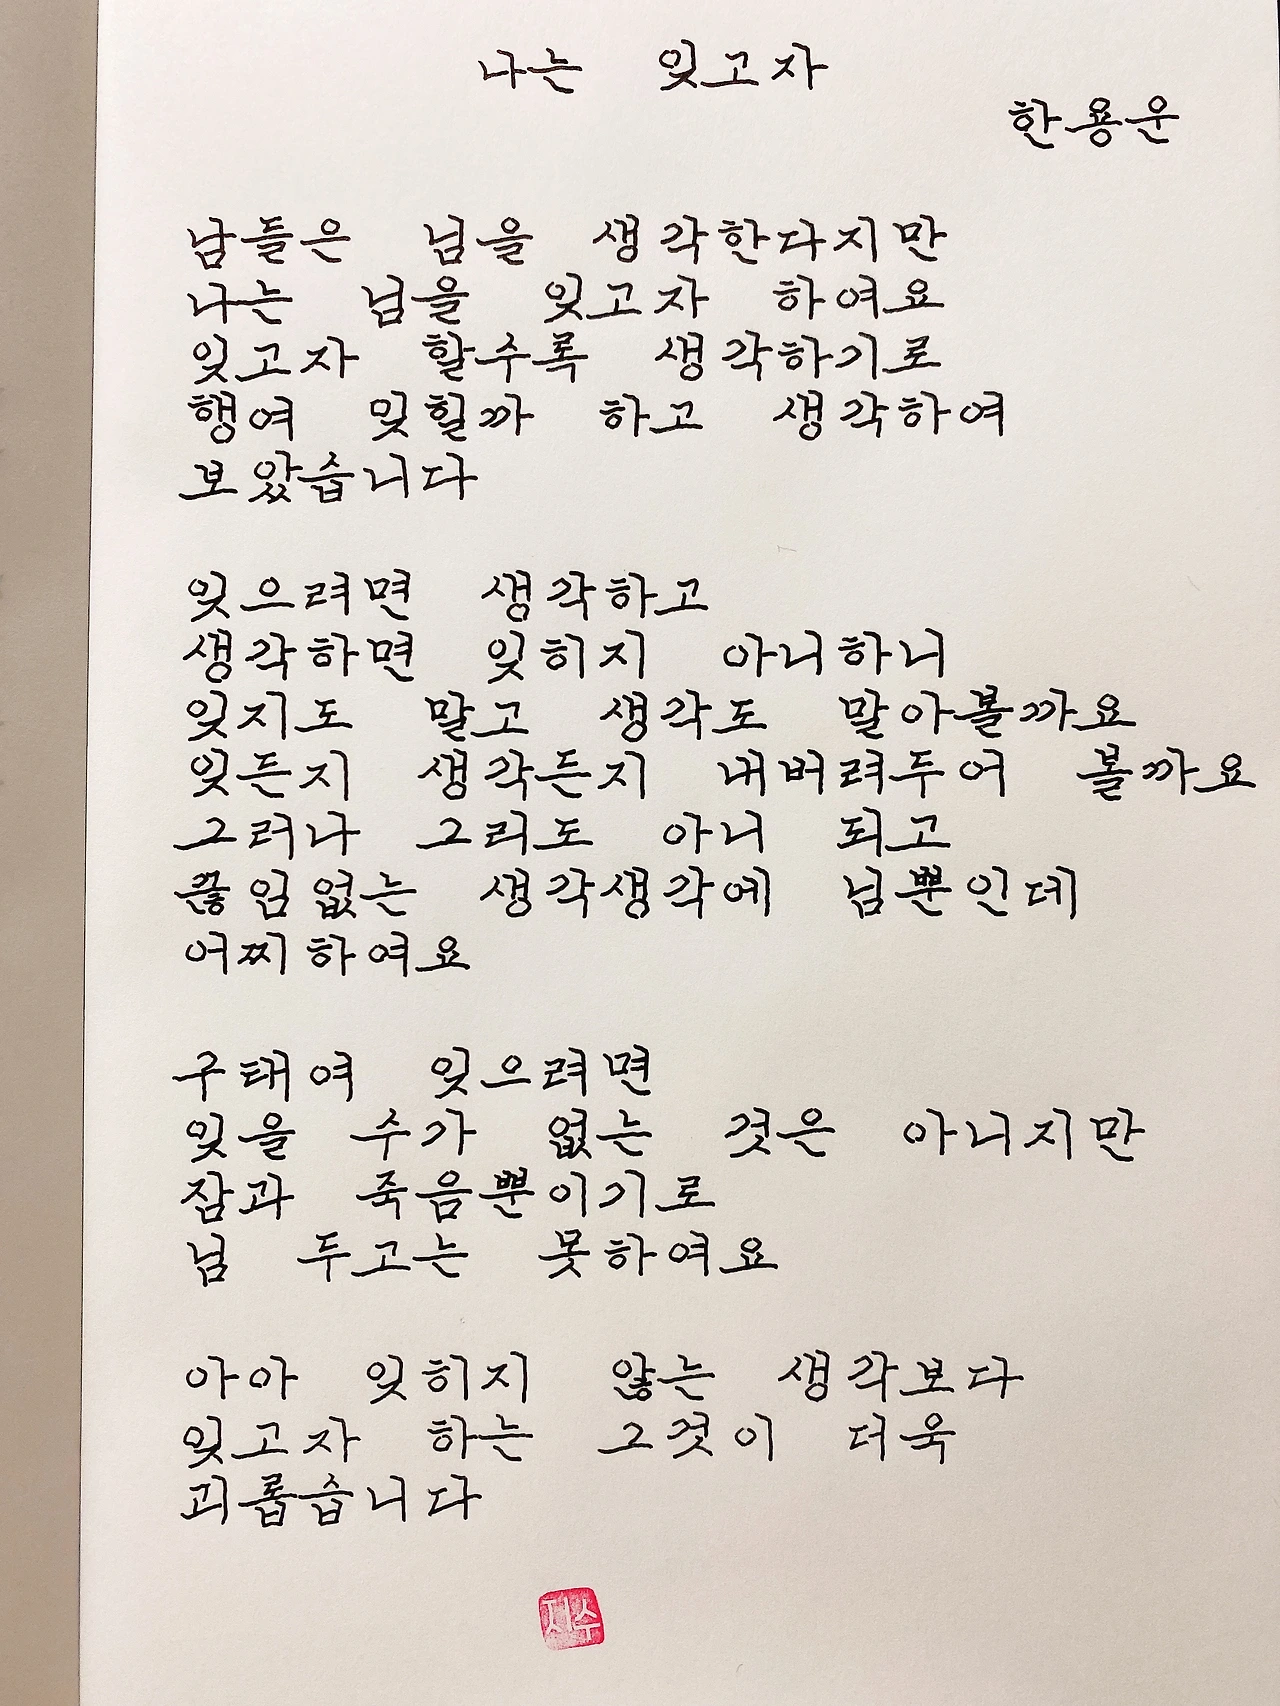 나는 잊고자
한용운
남들은 님을 생각한다지만
나는 님을 잊고자 하여요
잊고자 할수록 생각하기로
행여 잊힐까 하고 생각하여
보았습니다
잊으려면 생각하고
생각하면 잊히지 아니하니
잊지도 말고 생각도 말아볼까요
잊든지 생각든지 내버려두어 볼까요
그러나 그리도 아니 되고
끊임없는 생각생각에 님뿐인데
어찌하여요
구태여 잊으려면
잊을 수가 없는 것은 아니지만
잠과 죽음뿐이기로
님 두고는 못하여요
아아 잊히지 않는 생각보다
잊고자 하는 그것이 더욱
괴롭습니다
지수